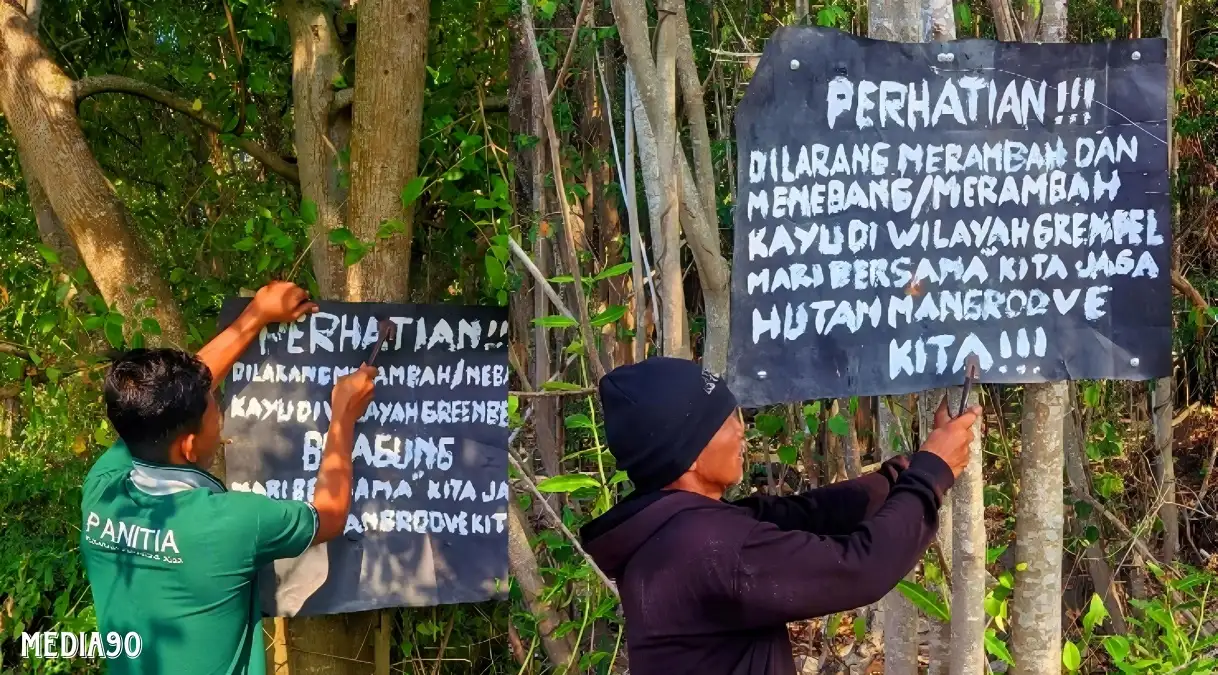 PERHATIAN!!
DILARANG MERAMBAH/NEBA
KAYU DI WILAYAH GREENBE
B AGUNG
MARI BERSAMA" KITA JA
ANGROOVE KIT
PANITIA
MEDIA90
PERHATIAN!!!
DILARANG MERAMBAH DAN
MENEBANG/MERAMBAH
KAYU DI WILAYAH GREMPEL
MARI BERSAMA" KITA JAGA
HUTAN MANGROOVE
KITA!!!